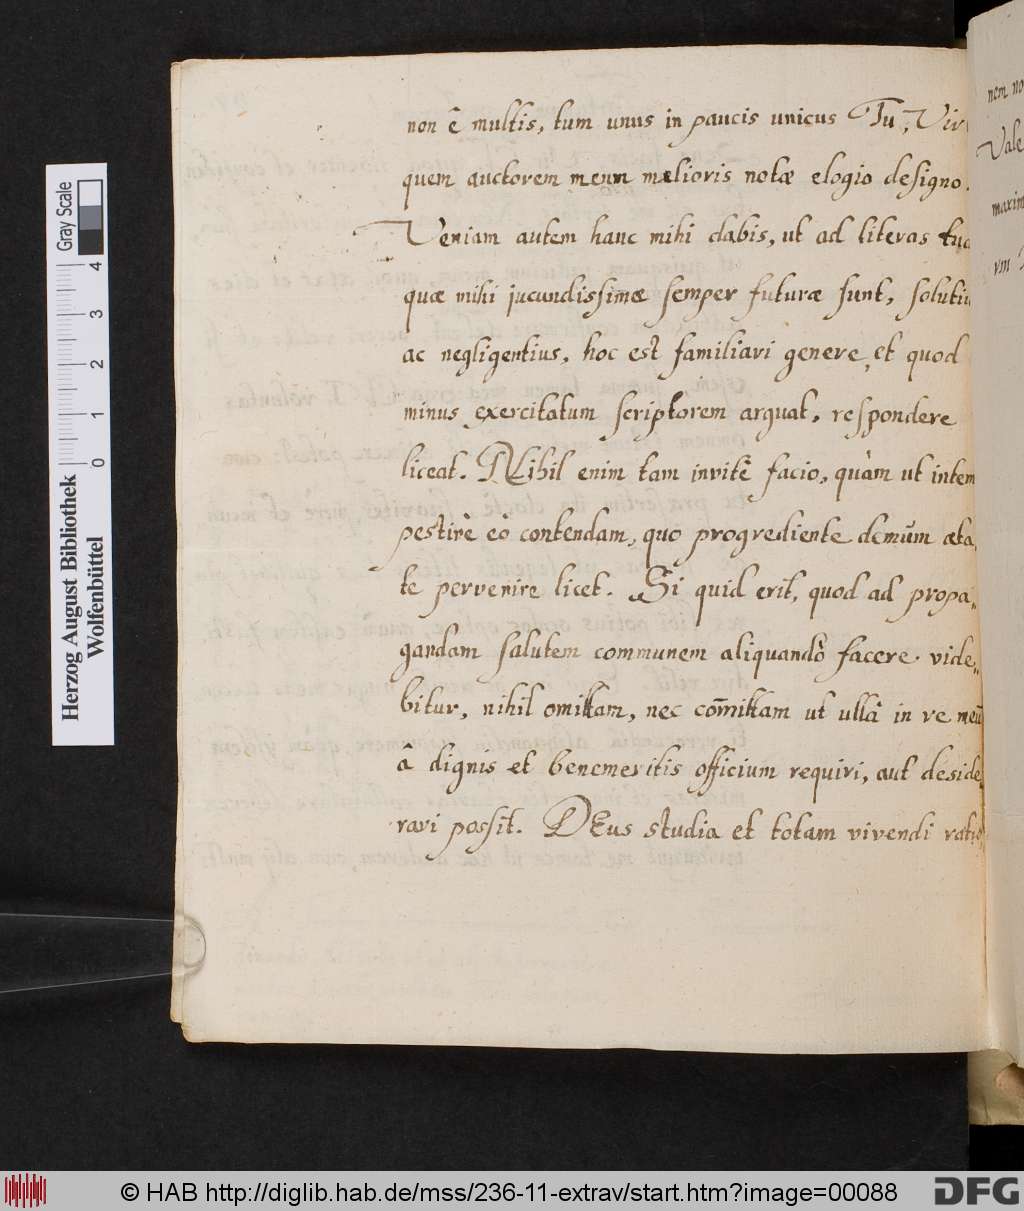 non ê multis, tum unus in paucis unicus Tu, Vir
quem auctorem meun melioris notæ elogio designo.
Veniam autem hanc mihi dabis, ut ad literas tua
quæ mihi jucundissimæ semper futuræ sunt, soluti
ac negligentius, hoc est familiari genere, et quod
minus exercitatum scriptorem arguat, respondere
liceat. Nihil enim tam invitè facio, quàm ut intem
pestivè eò contendam, quo progrediente demũm æta,
te pervenire licet. Si quid erit, quod ad propa„
gandam salutem communem aliquandò facere vide„
bitur, nihil omittam, nec com̃ittam ut ullâ in re meũ
â dignis et benemeritis officium requiri, aut deside
rari possit. DEus studia et totam vivendi ratio
nem no
Vale
maxim
vm
Gray Scale
4
3
2
1
0
Herzog August Bibliothek
Wolfenbüttel
© HAB http://diglib.hab.de/mss/236-11-extrav/start.htm?image=00088
DFG